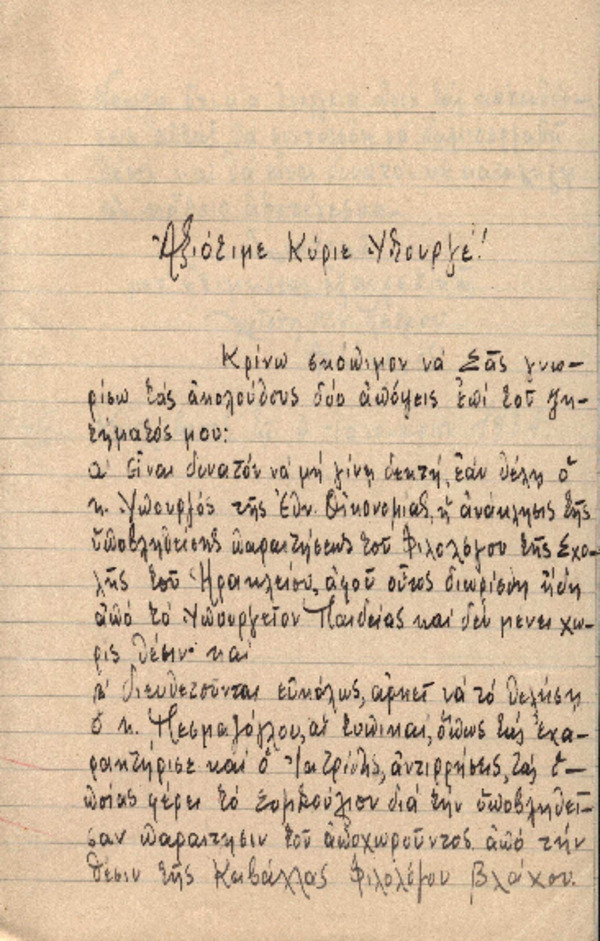 Ἀξιότιμε Κύριε Ὑπουργέ!
Κρίνω σκόπιμον νὰ Σᾶς γνω-
ρίσω τὰς ἀκολούθους δύο ἀπόψεις ἐπὶ τοῦ ζη-
τήματός μου:
α' εἶναι δυνατόν νὰ μή γίνῃ δεκτή, ἐάν θέλῃ ὁ
κ. Ὑπουργός τῆς Ἐθν. Οἰκονομίας, ἡ ἀνάκλησις τῆς
ὑποβληθείσης παραιτήσεως τοῦ Φιλολόγου τῆς Σχο-
λῆς τοῦ Ἡρακλείου, ἀφοῦ οὗτος διωρίσθη ἤδη
ἀπό τό Ὑπουργεῖον Παιδείας καί δέν μένει χω-
ρίς θέσιν· καί
β' διευθετοῦνται εὐκόλως, ἀρκεῖ νά τό θελήσῃ
ὁ κ. Πεσμαζόγλου, αἱ τυπικαί, ὅπως τάς ἐχα-
ρακτήρισε καί ὁ Ἰατρίδης, ἀντιρρήσεις, τάς ὁ-
ποίας φέρει τό Συμβούλιον διά τήν ὑποβληθεῖ-
σαν παραίτησιν τοῦ ἀποχωροῦντος ἀπό τήν
θέσιν τῆς Καβάλλας Φιλολόγου Βλάχου.